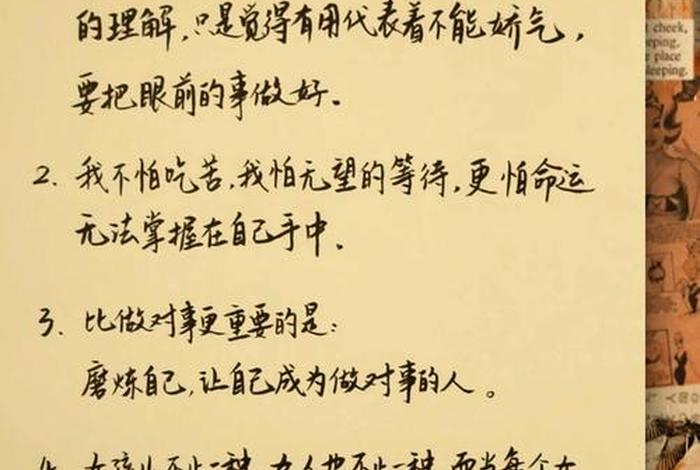 的理解,只是觉得有用代表着不能娇气,
要把眼前的事做好。
2. 我不怕吃苦,我怕无望的等待,更怕命运
无法掌握在自己手中。
3. 比做对事更重要的是:
磨炼自己,让自己成为做对事的人。
cheek,
place